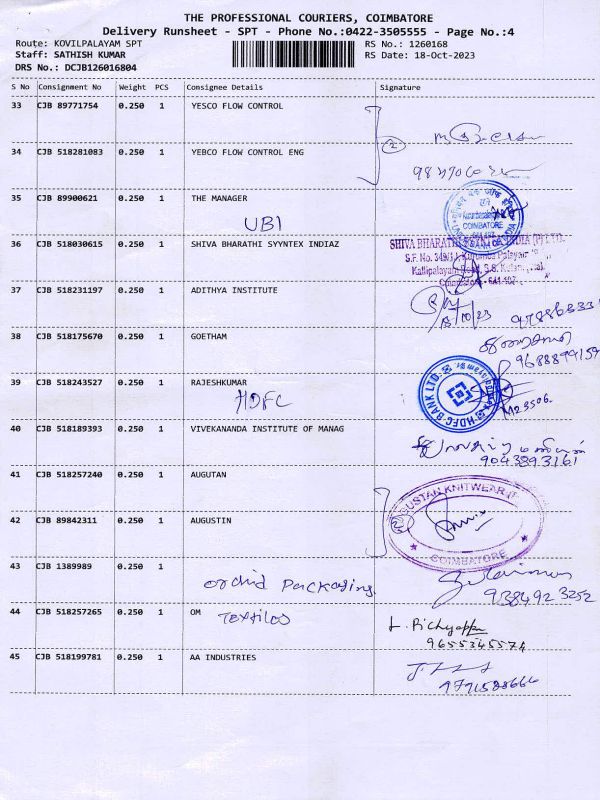 THE PROFESSIONAL COURIERS, COIMBATORE
Delivery Runsheet - SPT - Phone No.:0422-3505555 - Page No.:4
Route: KOVILPALAYAM SPT RS No.: 1260168
Staff: SATHISH KUMAR RS Date: 18-Oct-2023
DRS No.: DCJB126016804
S No Consignment No Weight PCS Consignee Details Signature
33 CJB 89771754 0.250 1 YESCO FLOW CONTROL
2
34 CJB 518281083 0.250 1 YEBCO FLOW CONTROL ENG
35 CJB 89900621 0.250 1 THE MANAGER
UBI
COIMBATORE
36 CJB 518030615 0.250 1 SHIVA BHARATHI SYYNTEX INDIAZ
SHIVA BHARATHI INDIA (P) LTD.
37 CJB 518231197 0.250 1 ADITHYA INSTITUTE
18/10/23
38 CJB 518175670 0.250 1 GOETHAM
9688899159
39 CJB 518243527 0.250 1 RAJESHKUMAR
HDFC
HDFC BANK LTD.
M23506.
40 CJB 518189393 0.250 1 VIVEKANANDA INSTITUTE OF MANAG
9043893161
41 CJB 518257240 0.250 1 AUGUTAN
42 CJB 89842311 0.250 1 AUGUSTIN
2
GUSTAN KNITWEAR
COIMBATORE
43 CJB 1389989 0.250 1
Orchid Packaging.
9384923252
44 CJB 518257265 0.250 1 OM
Textiles
L. Pichyappa
9655345574
45 CJB 518199781 0.250 1 AA INDUSTRIES
9791588666